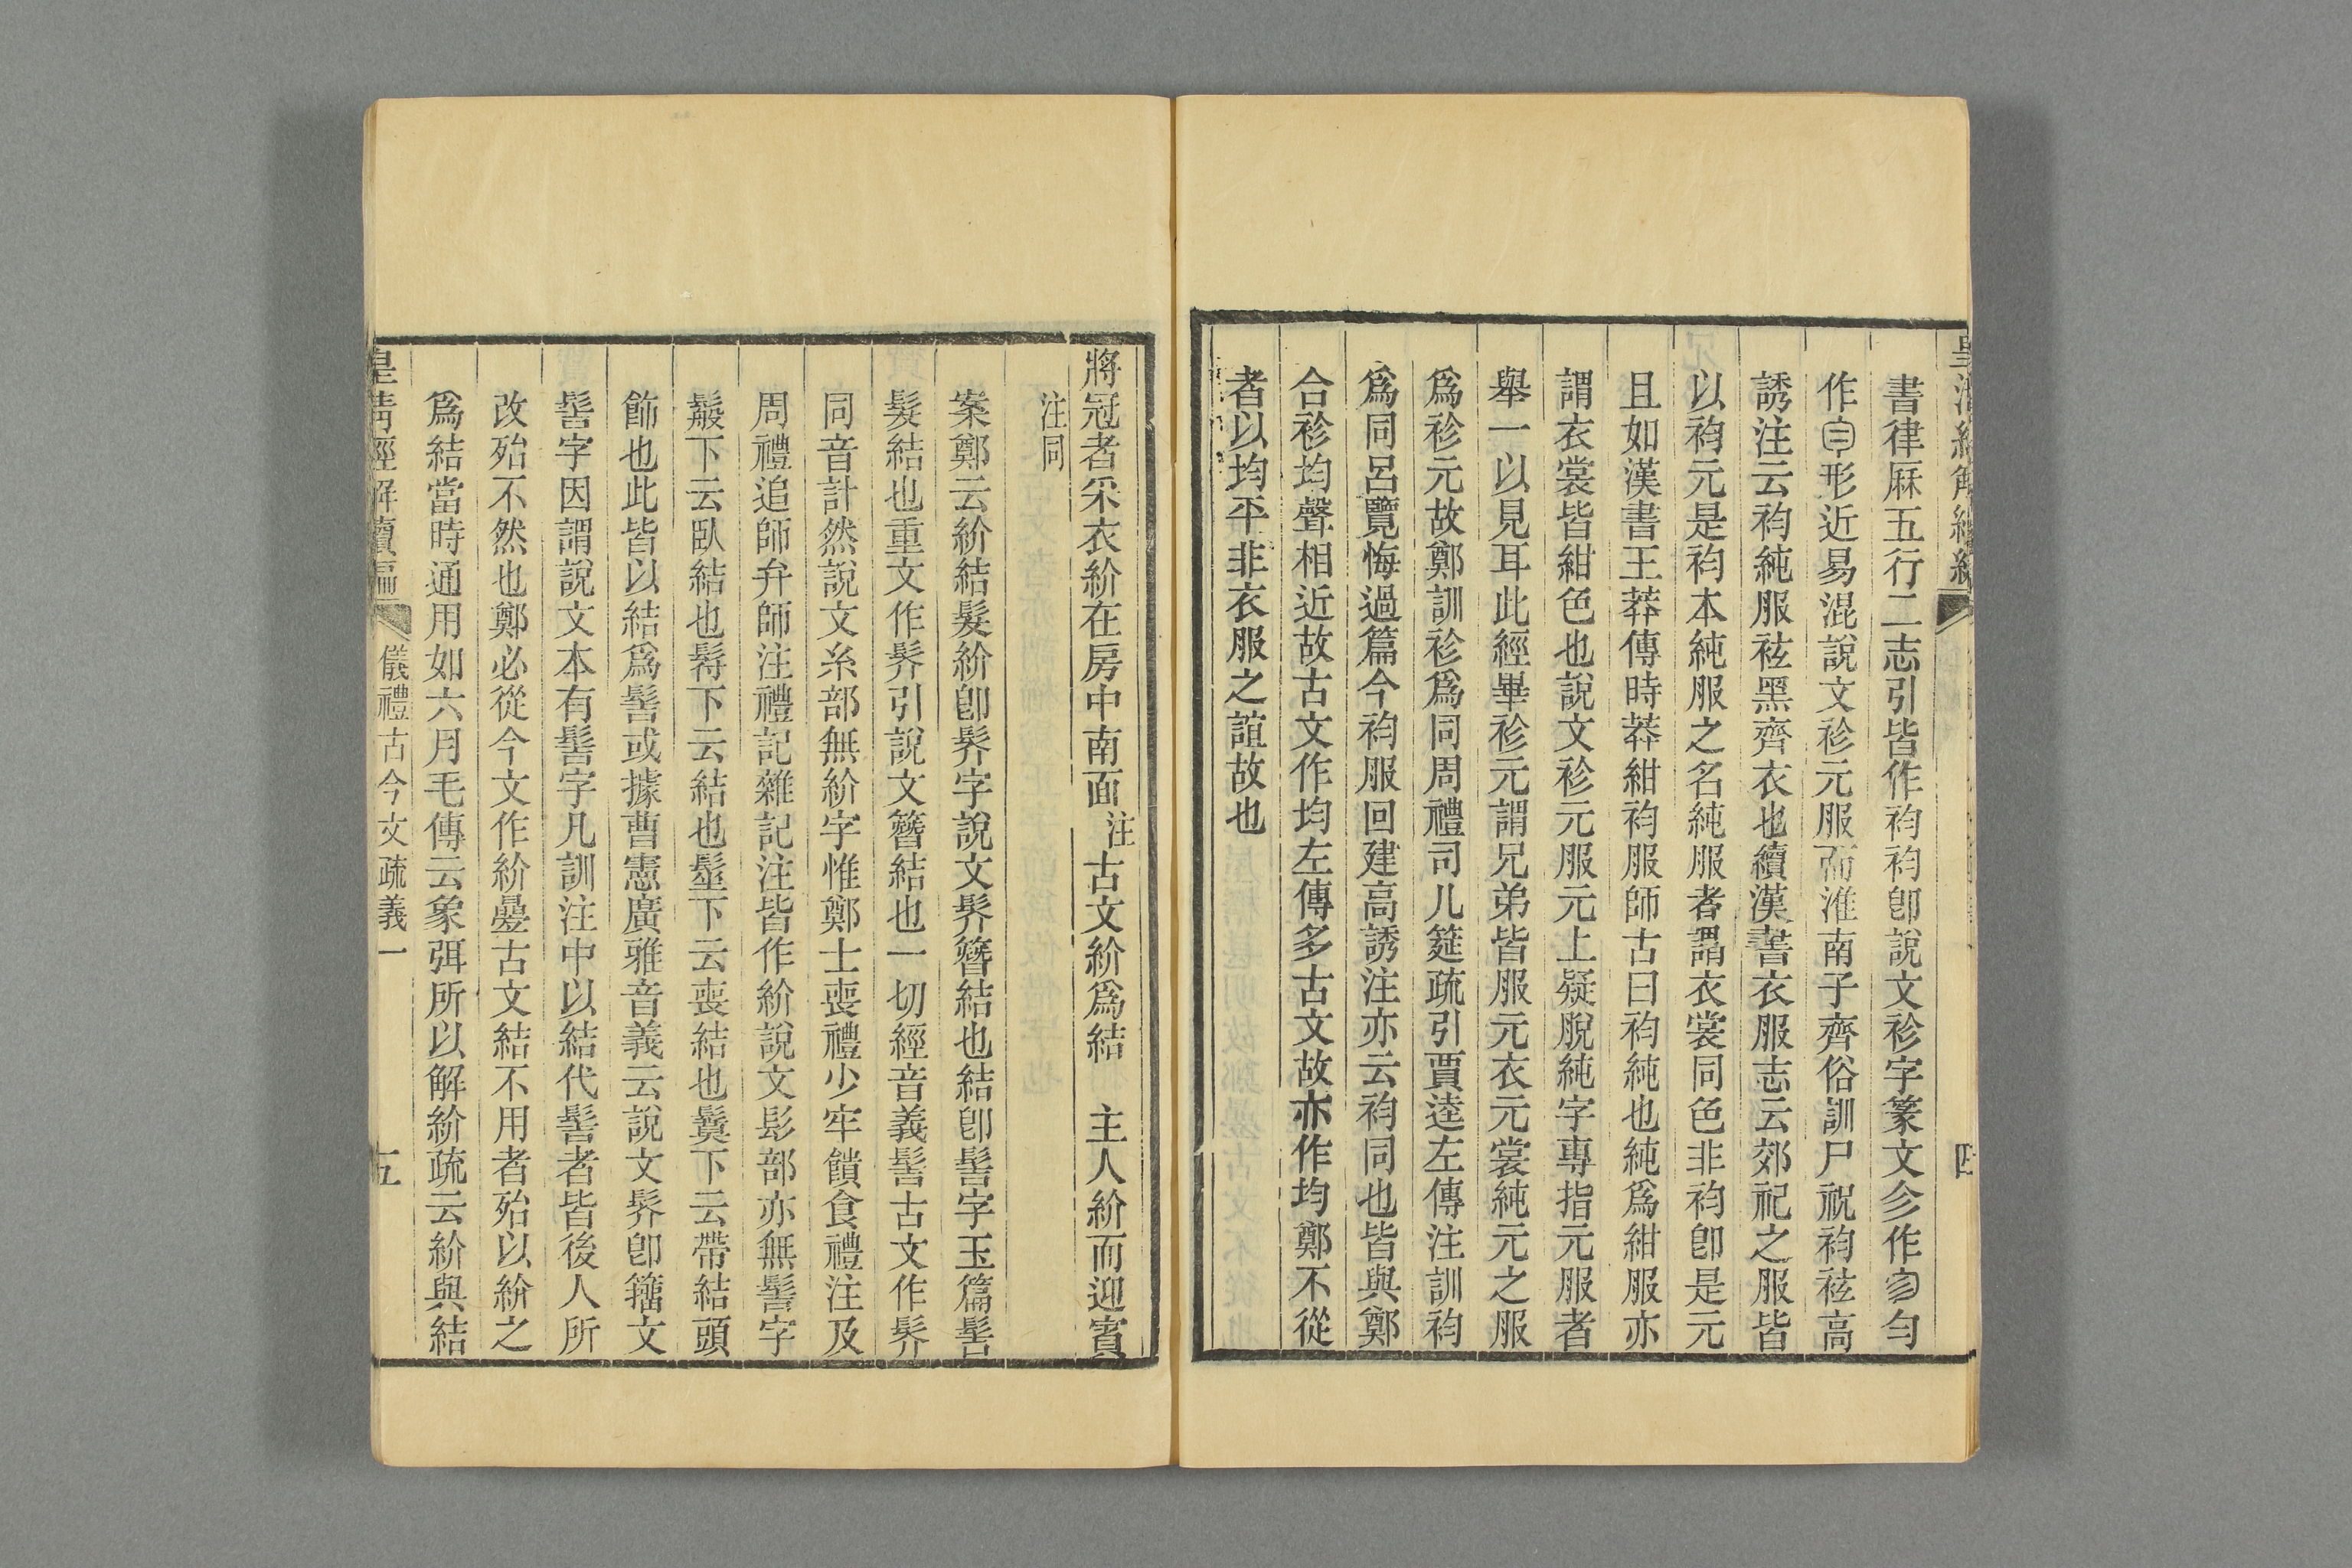 書律厤五行二志引皆作袀袀卽說文袗字篆文㐱作勻
作形近易混說文袗元服而淮南子齊俗訓尸祝袀袨高
誘注云袀純服袨黑齊衣也續漢書衣服志云郊祀之服皆
以袀元是袀本純服之名純服者謂衣裳同色非袀卽是元
且如漢書王莽傳時莽紺袀服師古曰袀純也純爲紺服亦
謂衣裳皆紺色也說文袗元服元上疑脫純字專指元服者
舉一以見耳此經畢袗元謂兄弟皆服元衣元裳純元之服
爲袗元故鄭訓袗爲同周禮司几筵疏引賈逵左傳注訓袀
爲同呂覽悔過篇今袀服回建高誘注亦云袀同也皆與鄭
合袗均聲相近故古文作均左傳多古文故亦作均鄭不從
者以均平非衣服之誼故也
四
將冠者采衣紒在房中南面注古文紒爲結　主人紒而迎賓
注同
案鄭云紒結髮紒卽髻字說文髻簪結也結卽髻字玉篇髻
髮結也重文作䯰引說文簪結也一切經音義髻古文作䯰
同音計然說文糸部無紒字惟鄭士喪禮少牢饋食禮注及
周禮追師弁師注禮記雜記注皆作紒說文髟部亦無髻字
鬆下云臥結也下云結也髽下云喪結也下云帶結頭
飾也此皆以結爲髻或據曹憲廣雅音義云說文䯰卽籀文
髻字因謂說文本有髻字凡訓注中以結代髻者皆後人所
改殆不然也鄭必從今文作紒曡古文結不用者殆以紒之
爲結當時通用如六月毛傳云象弭所以解紒疏云紒與結
皇清經解續編　儀禮古今文疏義一　五